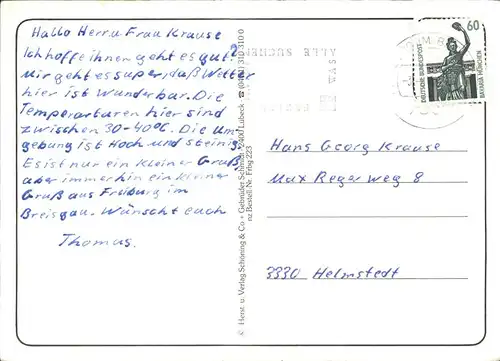 Hallo Herr u Frau Krause
Ich hoffe ihnen geht es gut?
Mir geht es super, daß Wetter
hier ist Wunderbar. Die
Temperarturen hier sind
zwischen 30-40°C. Die Um
gebung ist Hoch und steinig.
Es ist nur ein kleiner Gruß,
aber immerhin ein kleiner
Gruß aus Freiburg im
Breisgau. Wünscht euch
Thomas.
© Herst. u. Verlag Schöning & Co + Gebrüder Schmidt · 2400 Lübeck
nz Bestell. Nr. Frbg 223
60
DEUTSCHE BUNDESPOST
BAVARIA MÜNCHEN
Hans Georg Krause
Max Reger weg 8
3330 Helmstedt